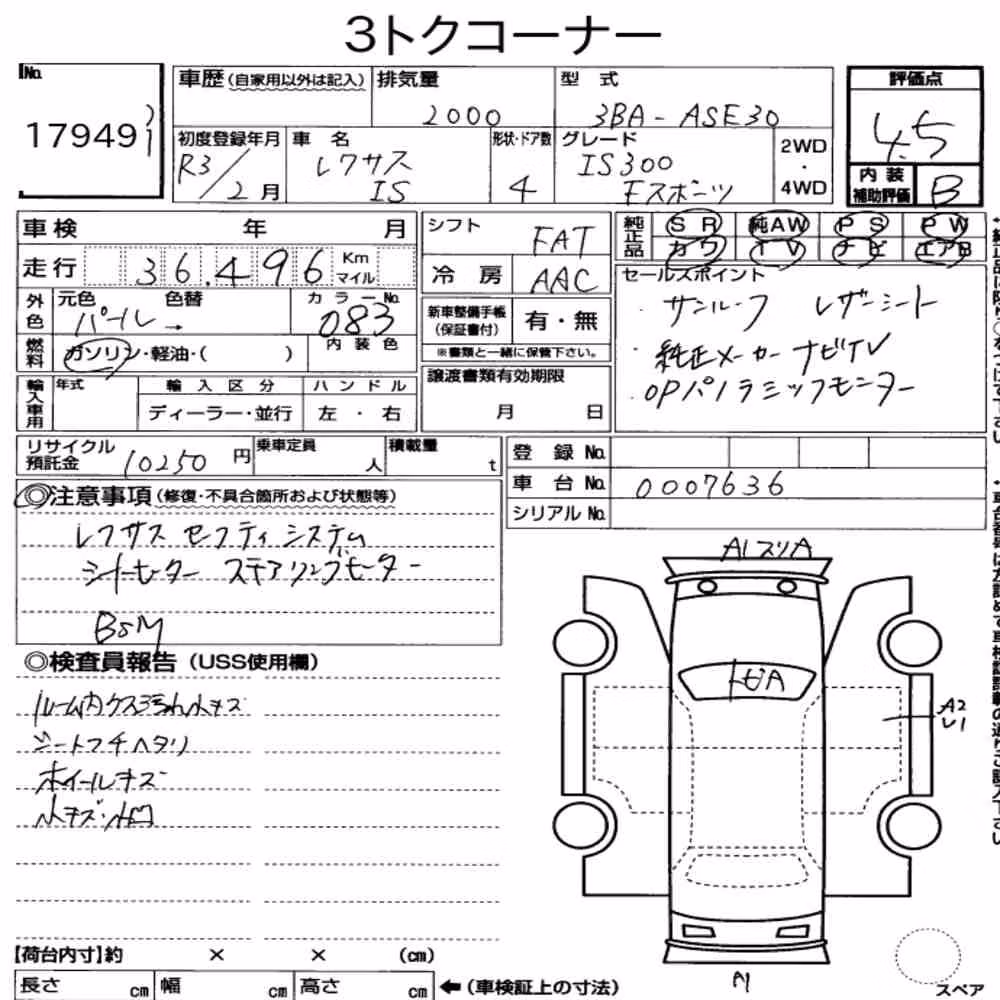 3トクコーナー
No.
17949
車歴 (自家用以外は記入)
排気量
2000
型式
3BA-ASE30
評価点
4.5
初度登録年月
R3/2月
車名
レクサス
IS
形状・ドア数
4
グレード
IS300
Fスポーツ
2WD
・
4WD
内装
補助評価
B
車検 年 月
走行 36,496 Km
マイル
シフト
FAT
冷房
AAC
純正品
SR 純AW PS PW
カワ TV ナビ エアB
外色
元色 色替
パール→
カラーNo.
083
内装色
燃料
ガソリン・軽油・( )
新車整備手帳
(保証書付)
有・無
※書類と一緒に保管下さい。
セールスポイント
・サンルーフ レザーシート
・純正メーカーナビTV
・OPパノラミックモニター
輸入車用
年式
輸入区分
ディーラー・並行
ハンドル
左・右
譲渡書類有効期限
月 日
リサイクル
預託金
10250円
乗車定員
人
積載量
t
登録No.
車台No. 0007636
シリアルNo.
◎注意事項 (修復・不具合箇所および状態等)
レクサス セーフティシステム
シートヒーター ステアリングヒーター
BSM
◎検査員報告 (USS使用欄)
ルーム内ケス汚れ小キズ
シートフチヘタリ
ホイールキズ
小キズ・小凹
A1スリA
トビA
A2
U1
A1
【荷台内寸】約 × × (cm)
長さ cm 幅 cm 高さ cm
←(車検証上の寸法)
スペア